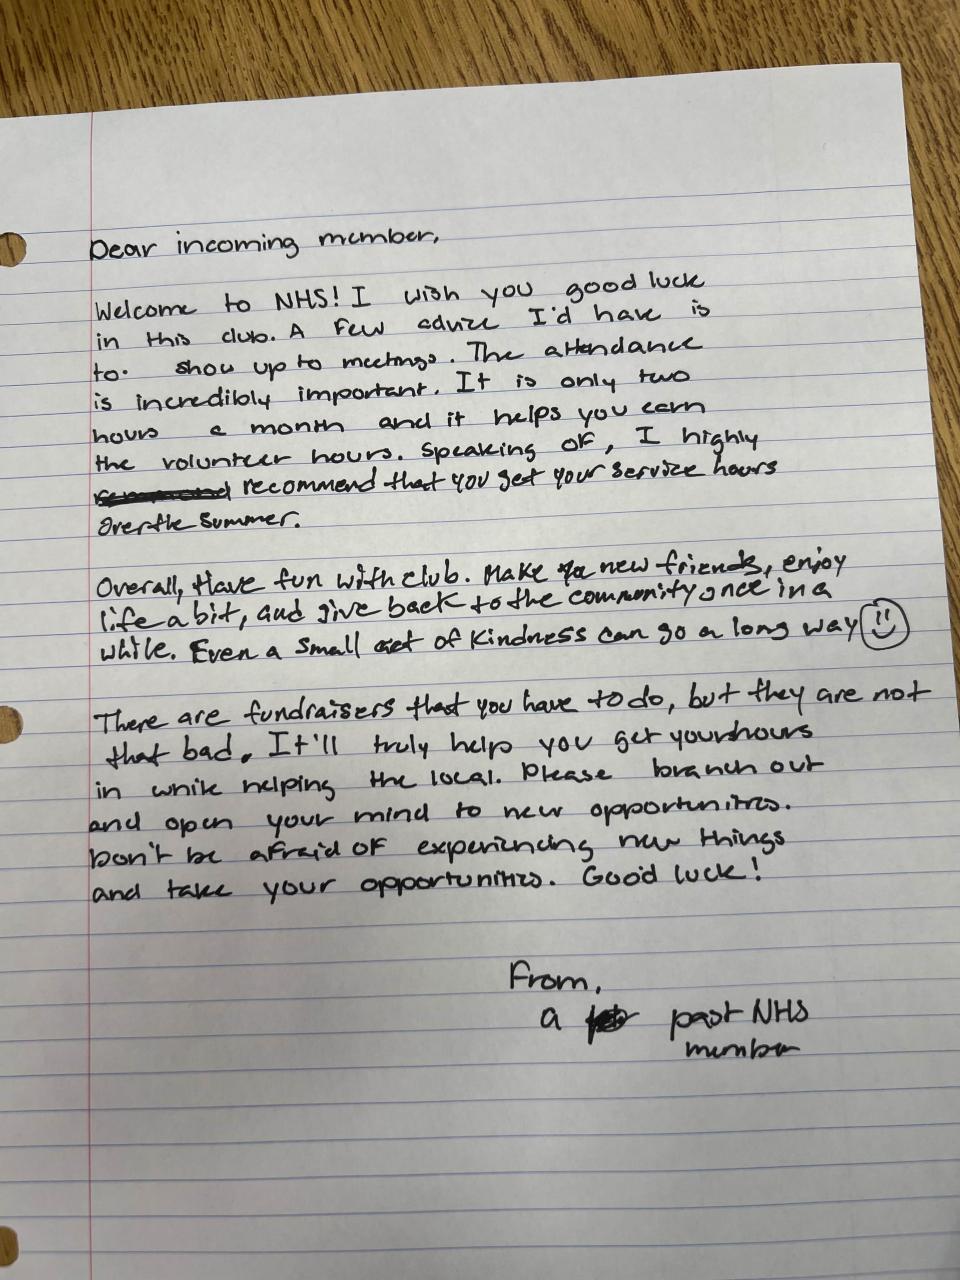 Dear incoming member,
Welcome to NHS! I wish you good luck
in this club. A few advice I'd have is
to. show up to meetings. The attendance
is incredibly important. It is only two
hours a month and it helps you earn
the volunteer hours. Speaking of, I highly
recommend that you get your service hours
over the summer.
Overall, Have fun with club. Make new friends, enjoy
life a bit, and give back to the community once in a
while. Even a small act of kindness can go a long way
There are fundraisers that you have to do, but they are not
that bad. It'll truly help you get your hours
in while helping the local. Please branch out
and open your mind to new opportunities.
Don't be afraid of experiencing new things
and take your opportunities. Good luck!
From,
a past NHS
member